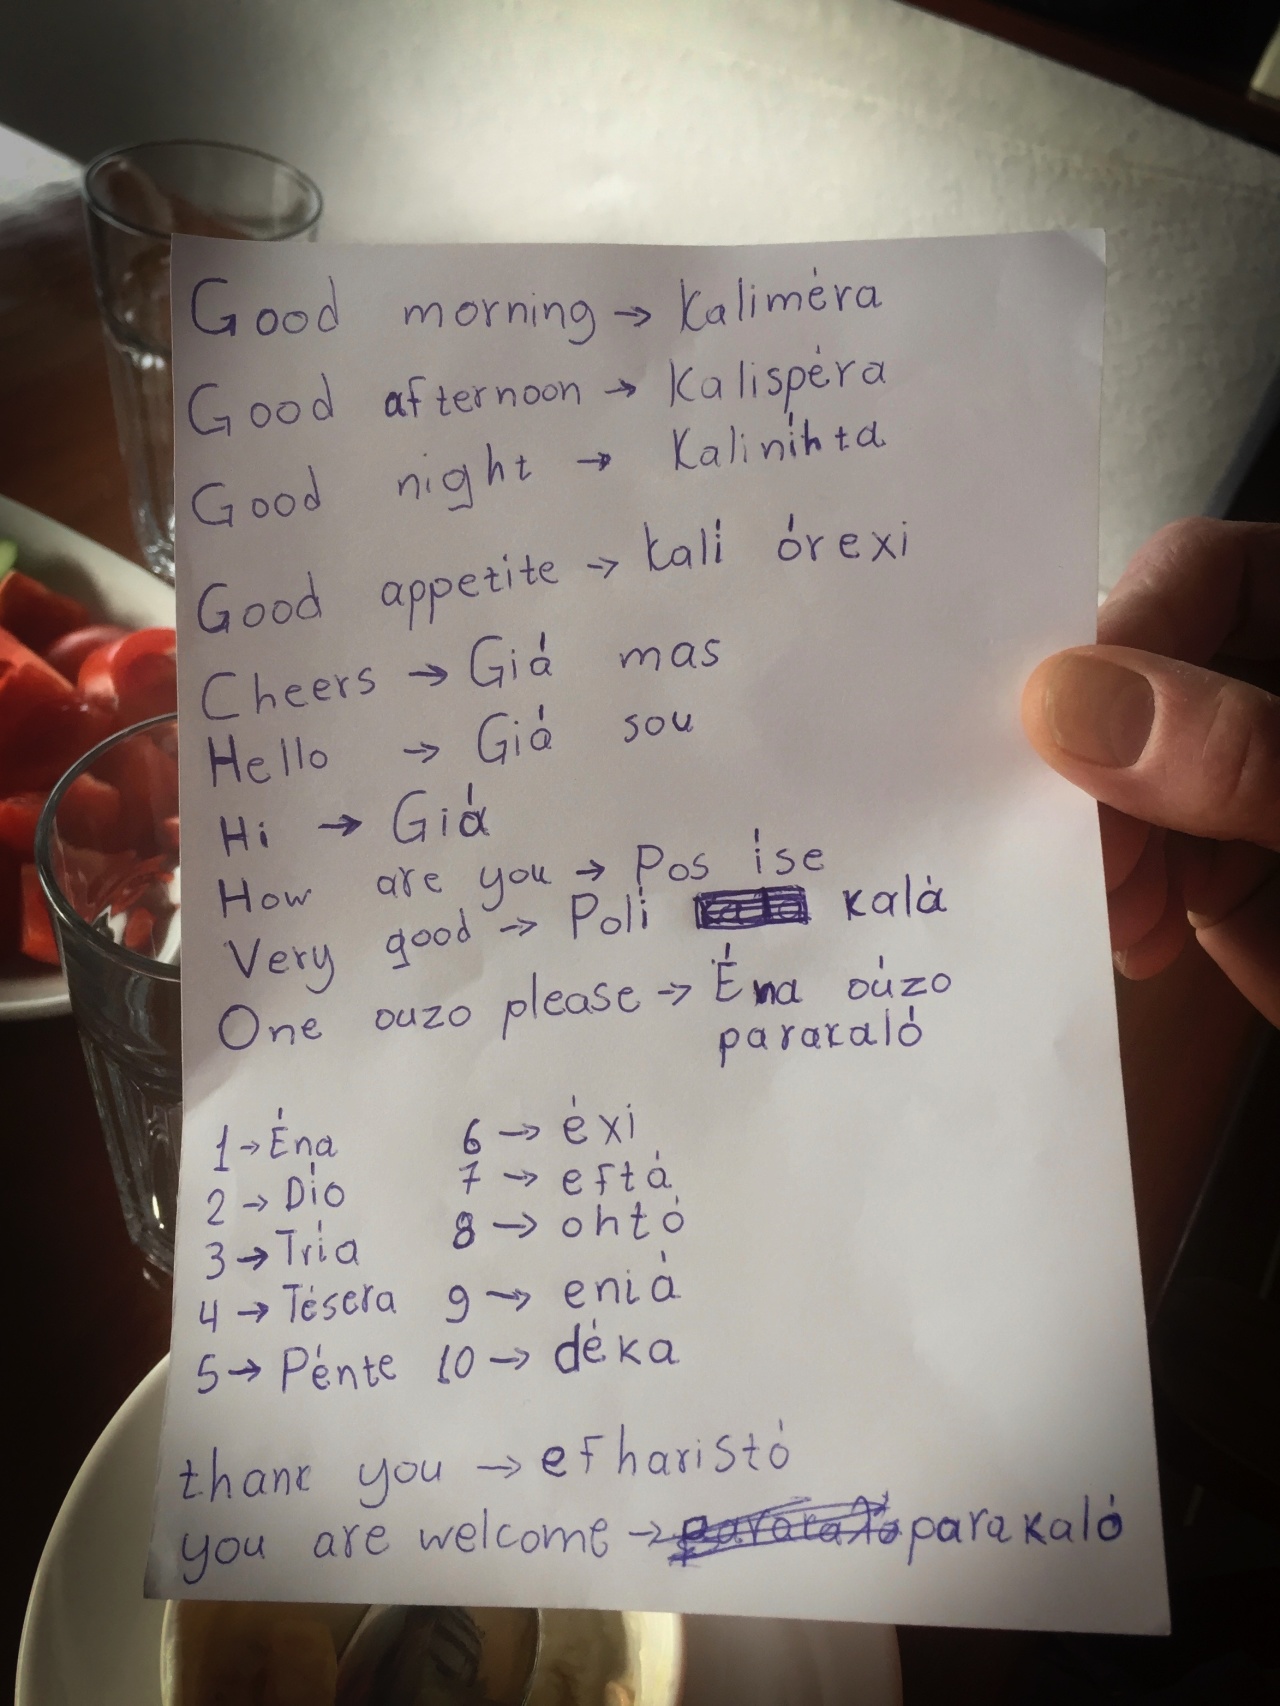 Good morning → Kaliméra
Good afternoon → Kalispéra
Good night → Kaliníhta
Good appetite → kalí órexi
Cheers → Giá mas
Hello → Giá sou
Hi → Giá
How are you → Pos íse
Very good → Polí kalá
One ouzo please → Éna oúzo
parakaló
1 → Éna 6 → éxi
2 → Dío 7 → eftá
3 → Tría 8 → ohtó
4 → Tésera 9 → eniá
5 → Pénte 10 → déka
thank you → efharistó
you are welcome → parakaló